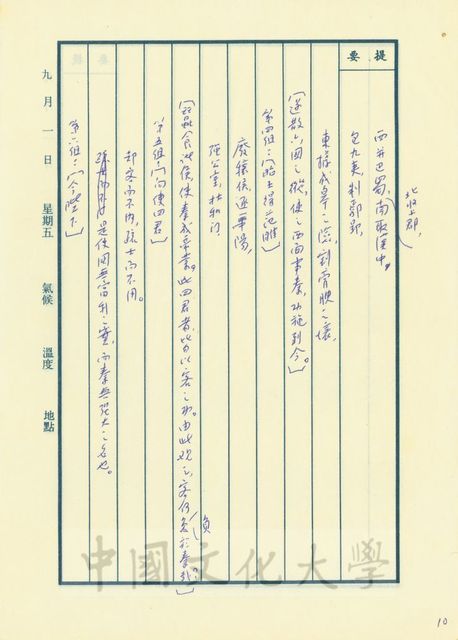 提要
西并巴蜀,北收上郡,南取漢中,
包九夷,制鄢郢,
東據成皋之險,割膏腴之壤,
〔遂散六國之從,使之西面事秦,功施到今。〕
第四組:〔昭王得范雎〕
廢穰侯,逐華陽,
強公室,杜私門
〔蠶食諸侯,使秦成帝業。此四君者,皆以客之功。由此觀之,客何負於秦哉。〕
第五組:〔向使四君〕
卻客而不內,疏士而不用。
是使國無富利之實,而秦無強大之名也。
第六組:〔今陛下〕
九月一日 星期五 氣候 溫度 地點
中國文化大學
10